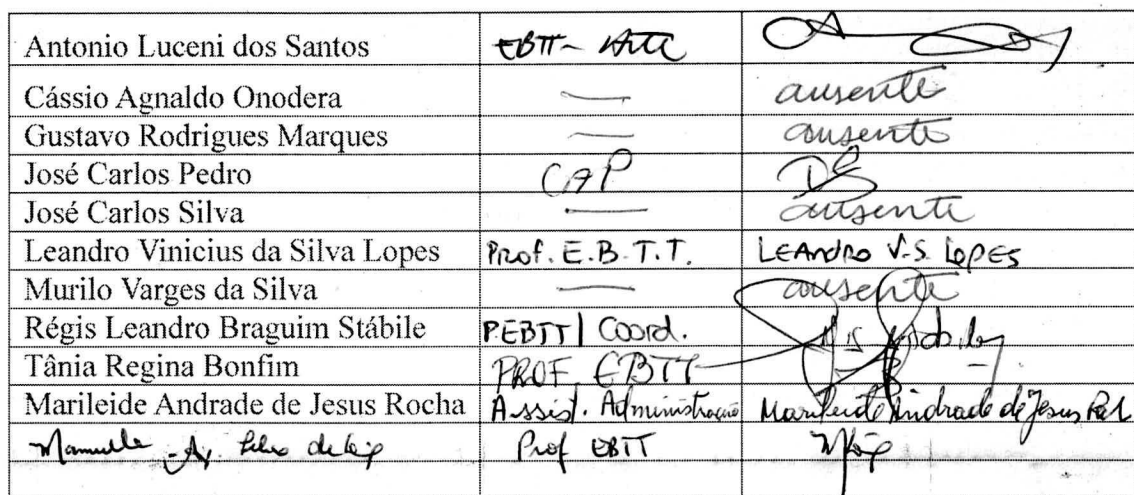 Antonio Luceni dos Santos EBTT - Arte
Cássio Agnaldo Onodera — ausente
Gustavo Rodrigues Marques — ausente
José Carlos Pedro CAP
José Carlos Silva — ausente
Leandro Vinicius da Silva Lopes Prof. E.B.T.T. LEANDRO V.S. LOPES
Murilo Varges da Silva — ausente
Régis Leandro Braguim Stábile PEBTT | Coord.
Tânia Regina Bonfim PROF EBTT
Marileide Andrade de Jesus Rocha Assist. Administração Marileide Andrade de Jesus
Prof EBTT